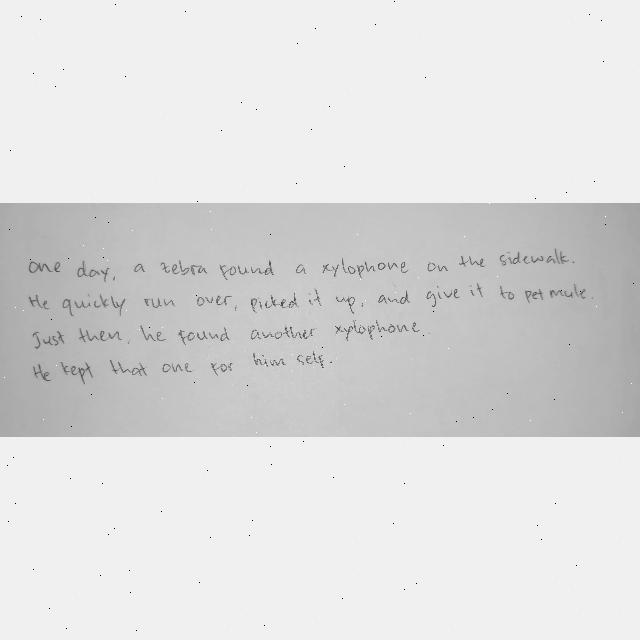 One day, a zebra found a xylophone on the sidewalk.
He quickly run over, picked it up, and give it to pet mule.
Just then, he found another xylophone.
He kept that one for him self.